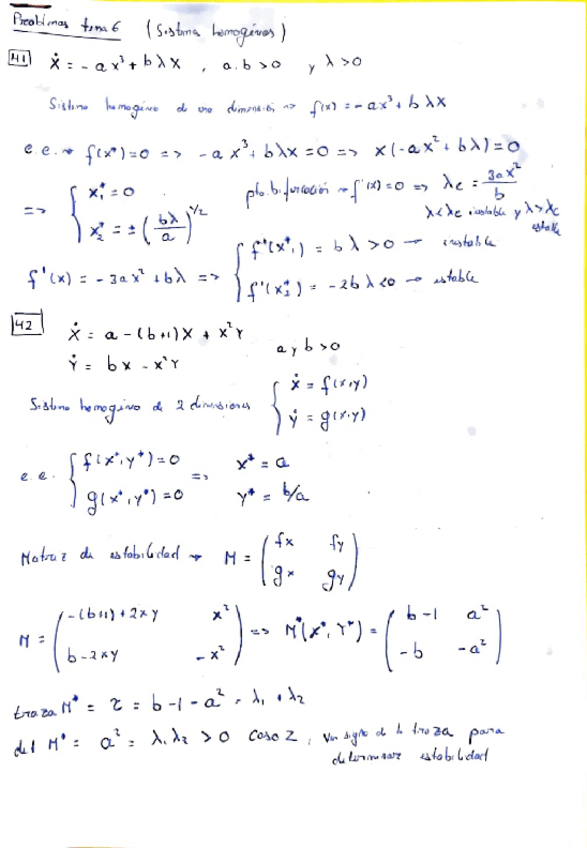 Problemas tema 6 (Sistemas homogéneos)
41 ẋ = -ax³ + bλx , a, b > 0 y λ > 0
Sistema homogéneo de una dimensión => f(x) = -ax³ + bλx
e.e. → f(x*) = 0 => -ax³ + bλx = 0 => x(-ax² + bλ) = 0
=> { x₁* = 0
x₂* = ± (bλ/a)^1/2
pto. bifurcación → f'(x) = 0 => λc = 3ax²/b
λ<λc inestable y λ>λc estable
f'(x) = -3ax² + bλ => { f'(x₁*) = bλ > 0 → inestable
f'(x₂*) = -2bλ < 0 → estable
42 Ẋ = a - (b+1)X + X²Y
Ẏ = bx - x²Y
a y b > 0
Sistema homogéneo de 2 dimensiones { ẋ = f(x,y)
ẏ = g(x,y)
e.e. { f(x*,y*) = 0 => x* = a
g(x*,y*) = 0 y* = b/a
Matriz de estabilidad → M = ( fx fy
gx gy )
M = ( -(b+1)+2xy x²
b-2xy -x² ) => M*(x*, Y*) = ( b-1 a²
-b -a² )
traza M* = τ = b-1-a² = λ₁ + λ₂
det M* = a² = λ₁λ₂ > 0 caso 2, ver signo de la traza para
determinar estabilidad